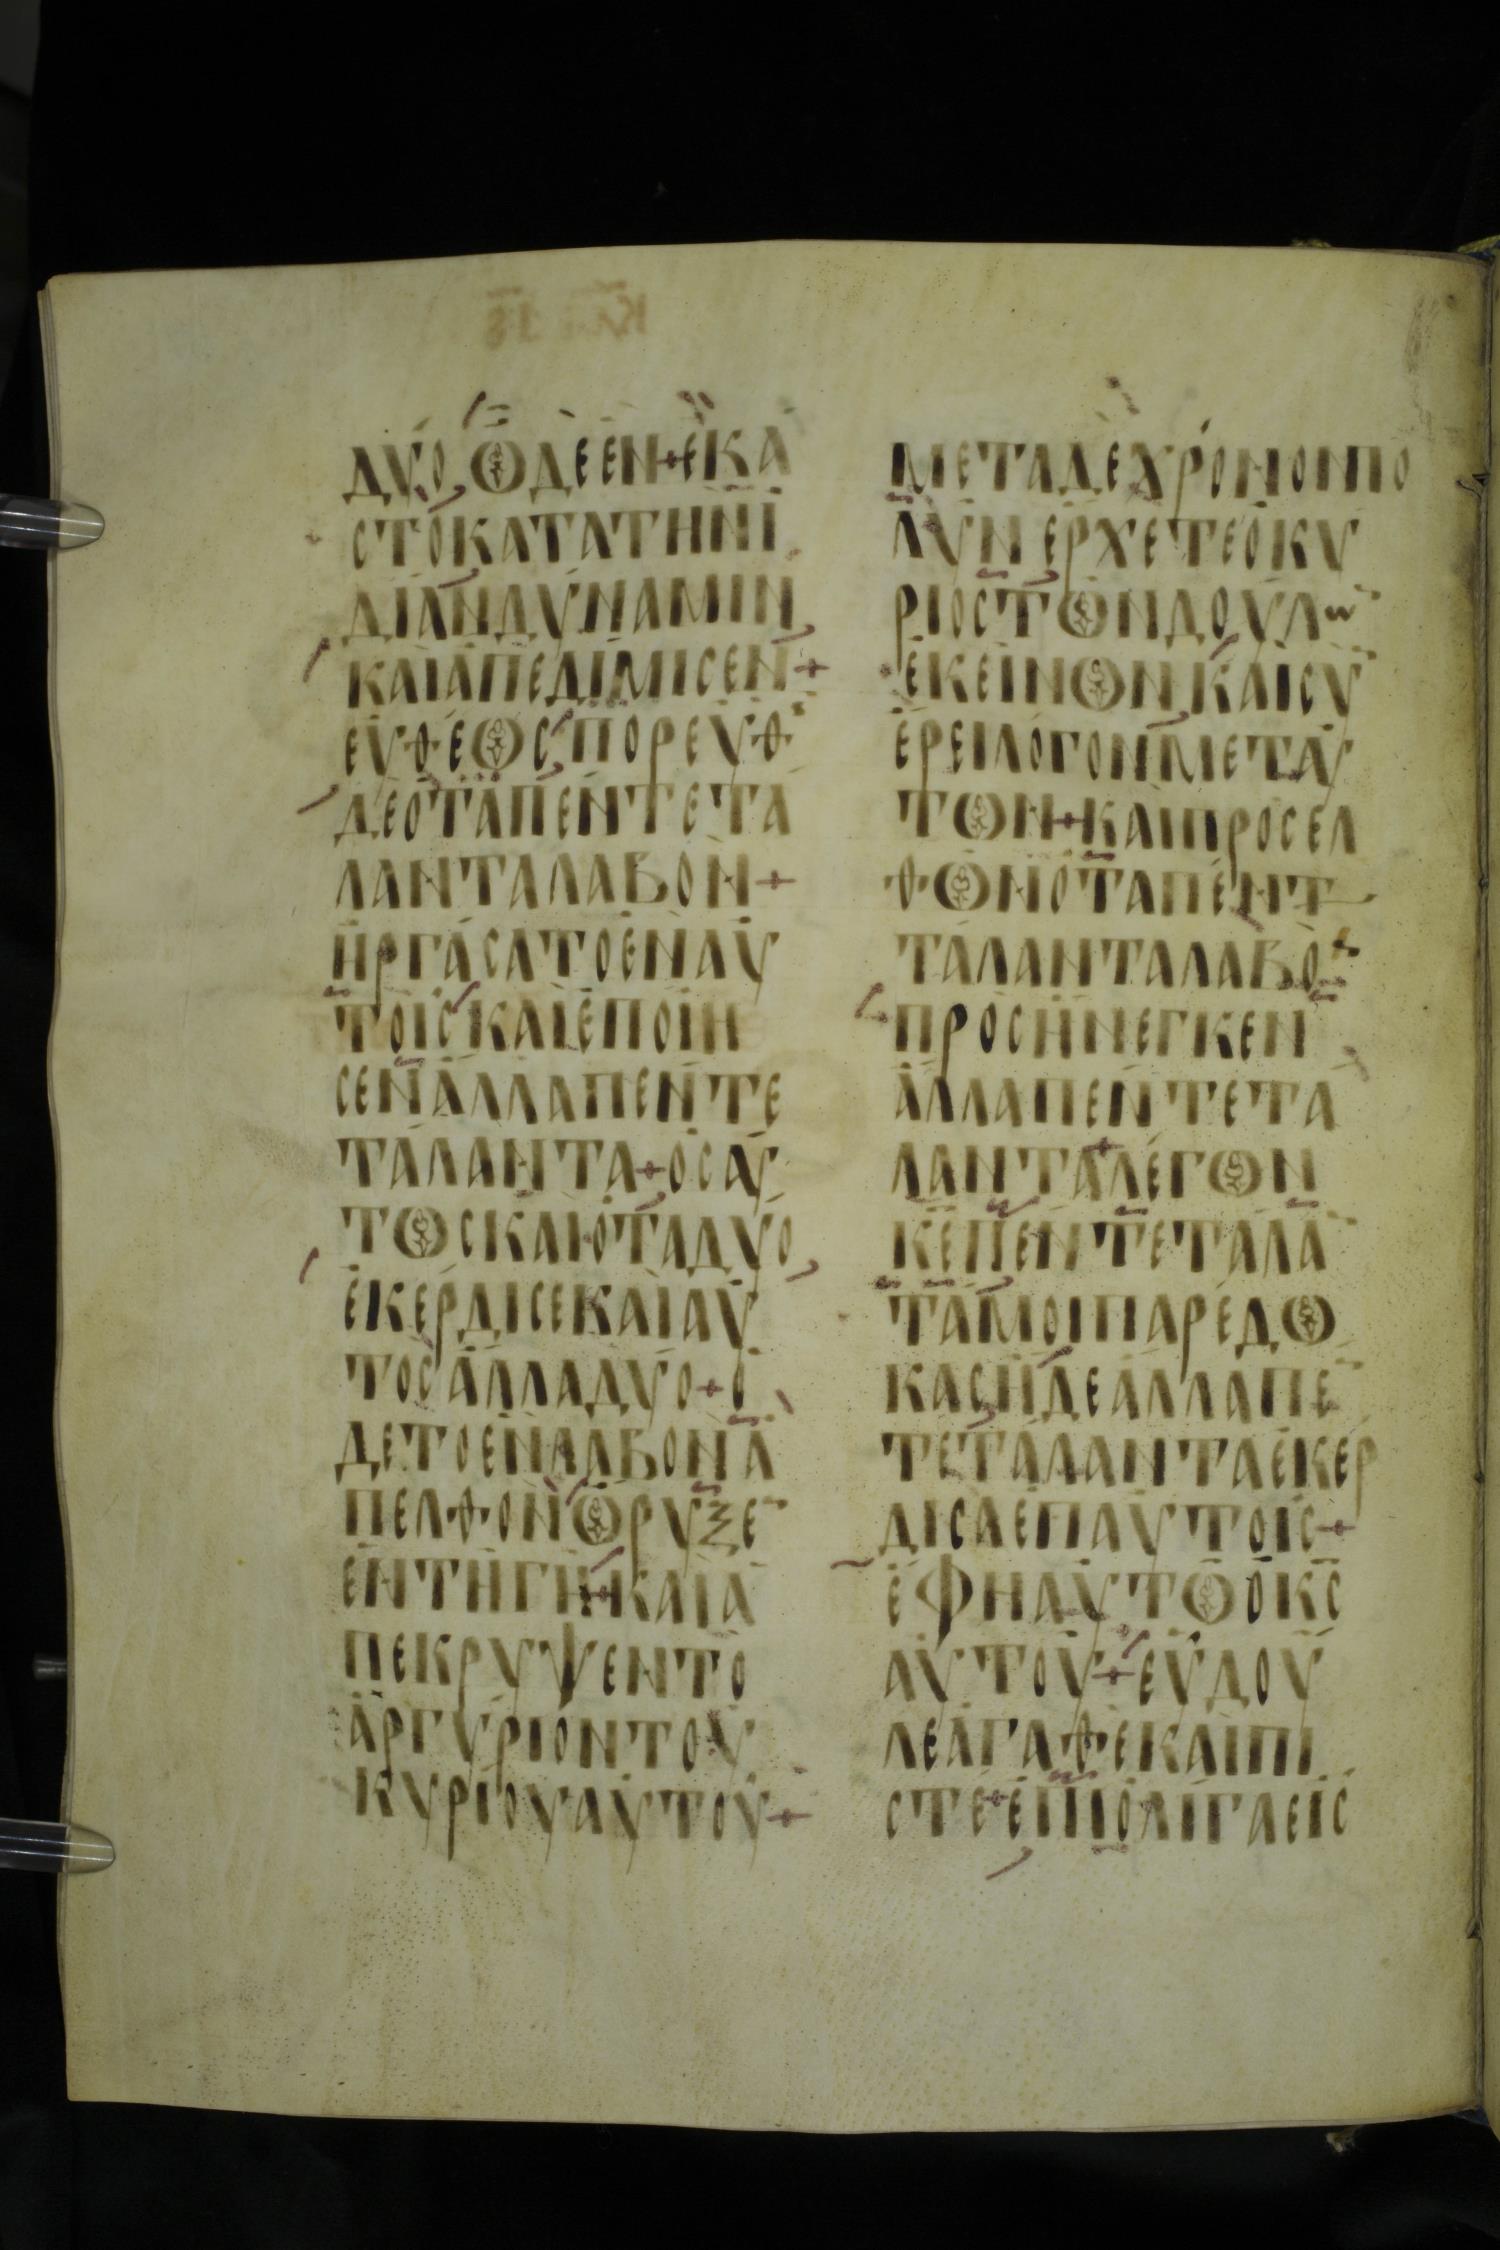 ΔΥΟ ΩΔΕΕΝ+ΕΚΑ
ϹΤΟΚΑΤΑΤΗΝΙ
ΔΙΑΝΔΥΝΑΜΙΝ
ΚΑΙΑΠΕΔΙΜΙϹΕΝ+
ΕΥΘΕΩϹΠΟΡΕΥΘ
ΔΕΟΤΑΠΕΝΤΕΤΑ
ΛΑΝΤΑΛΑΒΟΝ+
ΗΡΓΑϹΑΤΟΕΝΑΥ
ΤΟΙϹΚΑΙΕΠΟΙΗ
ϹΕΝΑΛΛΑΠΕΝΤΕ
ΤΑΛΑΝΤΑ+ΟϹΑΥ
ΤΩϹΚΑΙΟΤΑΔΥΟ
ΕΚΕΡΔΙϹΕΚΑΙΑΥ
ΤΟϹΑΛΛΑΔΥΟ+Ο
ΔΕΤΟΕΝΛΑΒΟΝΑ
ΠΕΛΘΟΝΩΡΥΞΕ
ΕΝΤΗΓΗ+ΚΑΙΑ
ΠΕΚΡΥΨΕΝΤΟ
ΑΡΓΥΡΙΟΝΤΟΥ
ΚΥΡΙΟΥΑΥΤΟΥ+
ΜΕΤΑΔΕΧΡΟΝΟΝΠΟ
ΛΥΝΕΡΧΕΤΕΟΚΥ
ΡΙΟϹΤΩΝΔΟΥΛω
ΕΚΕΙΝΩΝΚΑΙϹΥ
ΕΡΕΙΛΟΓΟΝΜΕΤΑΥ
ΤΩΝ+ΚΑΙΠΡΟϹΕΛ
ΘΩΝΟΤΑΠΕΝΤ
ΤΑΛΑΝΤΑΛΑΒΟ
ΠΡΟϹΗΝΕΓΚΕΝ
ΑΛΛΑΠΕΝΤΕΤΑ
ΛΑΝΤΑ+ΛΕΓΩΝ
ΚΕΠΕΝΤΕΤΑΛΑ
ΤΑΜΟΙΠΑΡΕΔΩ
ΚΑϹΗΔΕΑΛΛΑΠΕ
ΤΕΤΑΛΑΝΤΑΕΚΕΡ
ΔΙϹΑΕΠΑΥΤΟΙϹ+
ΕΦΗΑΥΤΩΟΚϹ
ΑΥΤΟΥ+ΕΥΔΟΥ
ΛΕΑΓΑΘΕΚΑΙΠΙ
ϹΤΕ+ΕΠΙΟΛΙΓΑΕΙϹ